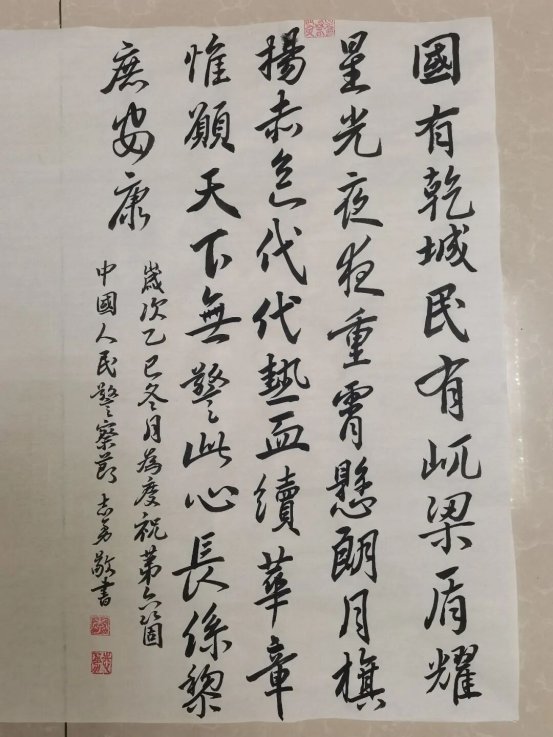 國有乾城民有屼梁盾耀
星光夜夜重霄懸朗月旗
揚赤色代代熱血續華章
惟願天下無警此心長係黎
庶安康
歲次乙巳冬月為慶祝第六箇
中國人民警察節 志敬書